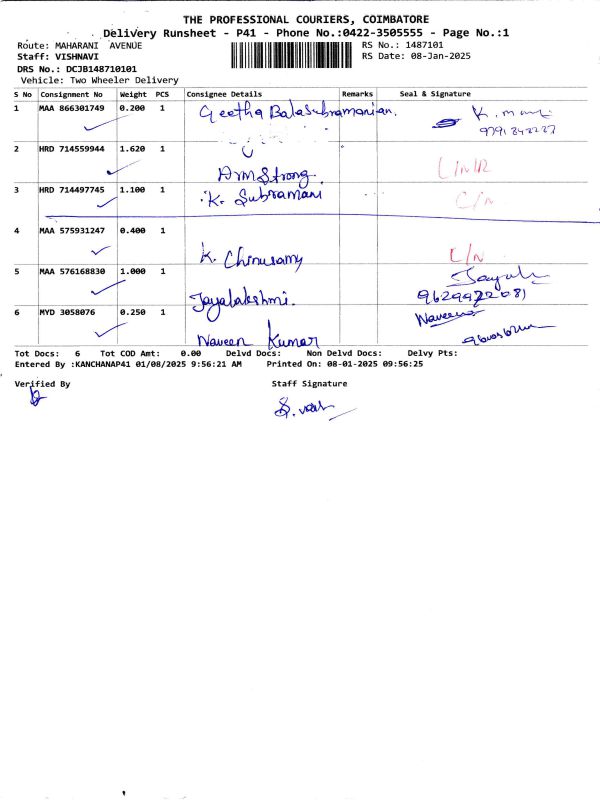 THE PROFESSIONAL COURIERS, COIMBATORE
Delivery Runsheet - P41 - Phone No.:0422-3505555 - Page No.:1
Route: MAHARANI AVENUE RS No.: 1487101
Staff: VISHNAVI RS Date: 08-Jan-2025
DRS No.: DCJB148710101
Vehicle: Two Wheeler Delivery
S No Consignment No Weight PCS Consignee Details Remarks Seal & Signature
1 MAA 866301749 0.200 1 Geetha Balasubramanian.
2 HRD 714559944 1.620 1 ArmStrong.
3 HRD 714497745 1.100 1 K. Subramani C/N
4 MAA 575931247 0.400 1 K. Chinusamy C/N
5 MAA 576168830 1.000 1 Jayalakshmi.
6 MYD 3058076 0.250 1 Naveen Kumar Naveen
Tot Docs: 6 Tot COD Amt: 0.00 Delvd Docs: Non Delvd Docs: Delvy Pts:
Entered By :KANCHANAP41 01/08/2025 9:56:21 AM Printed On: 08-01-2025 09:56:25
Verified By Staff Signature